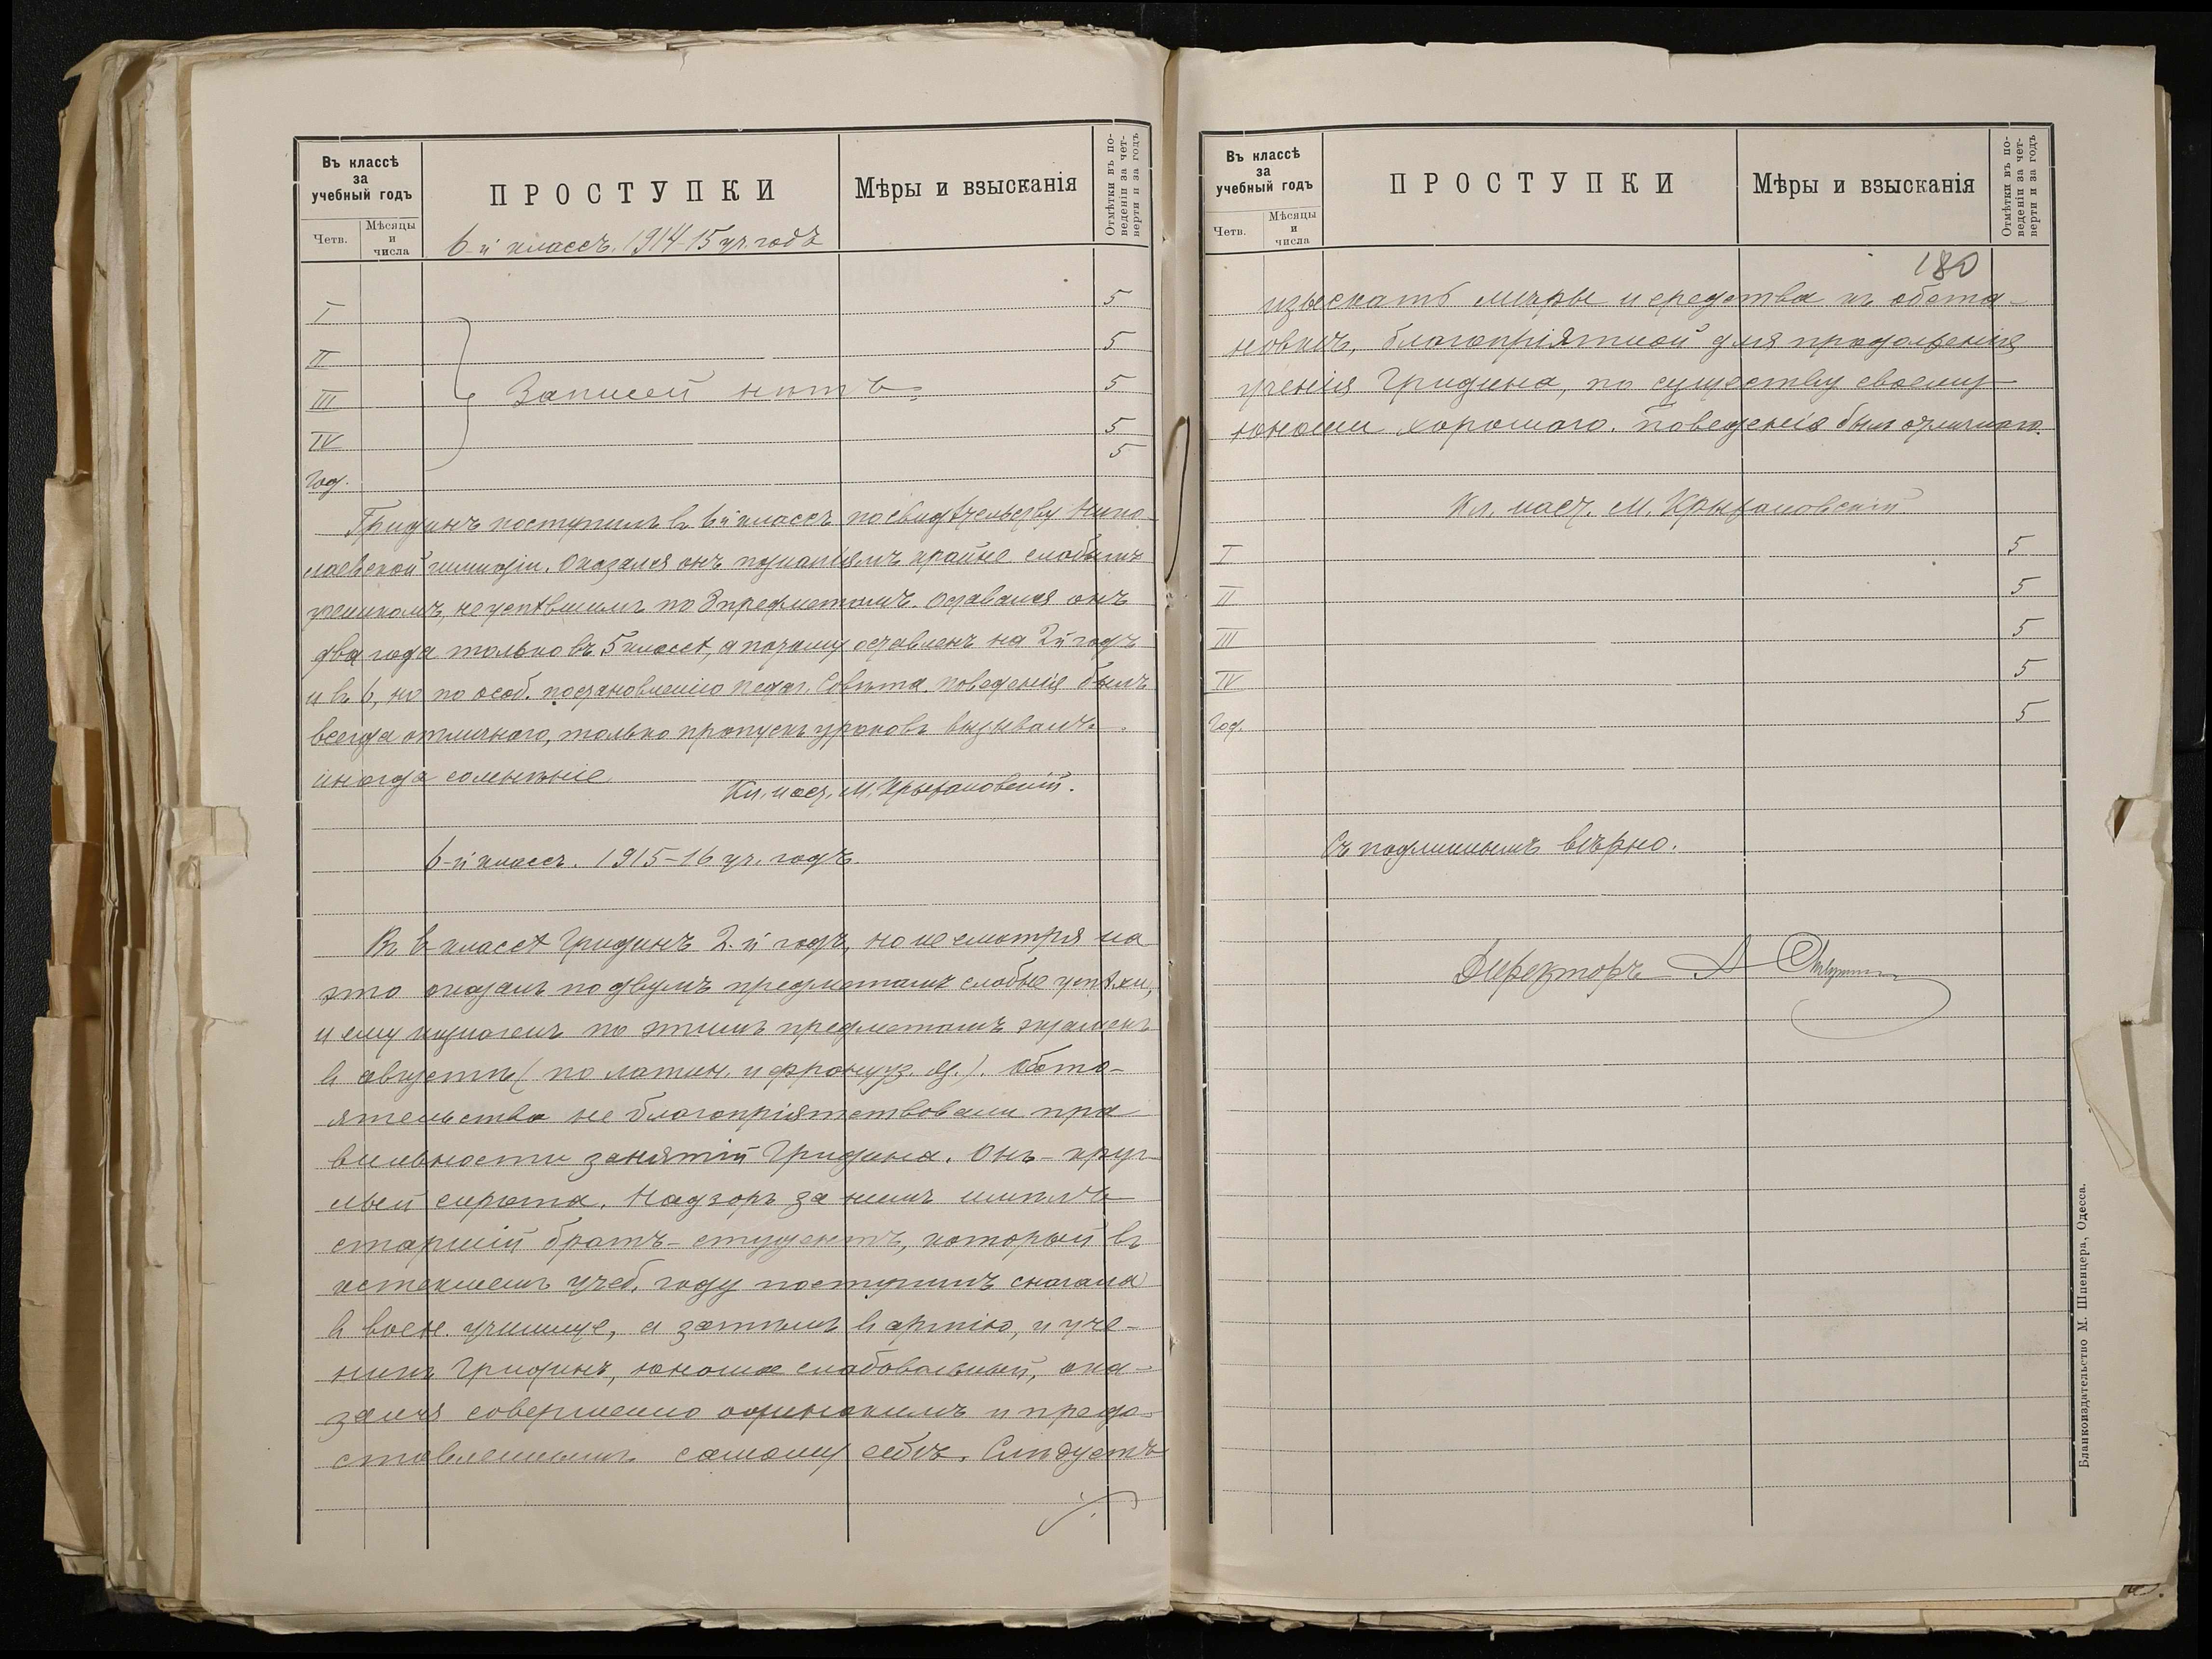 Въ классѣ
за
учебный годъ
Четв.
Мѣсяцы
и
числа
ПРОСТУПКИ
Мѣры и взысканія
Отмѣтки въ по-
веденіи за чет-
верти и за годъ
6-й классъ. 1914-15 уч. годъ
I 5
II 5
III Записей нѣтъ. 5
IV 5
Год. 5
Гридинъ поступилъ въ 6й классъ по свидѣтельству Нико-
лаевской гимназіи. Оказался онъ познаніямъ крайне слабымъ
ученикомъ, не успѣвшимъ по 8 предметамъ. Оставался онъ
два года только въ 5 классѣ, а потому оставленъ на 2й годъ
и въ 6, но по особ. постановленію Педаг. Совѣта. поведенія былъ
всегда отличнаго, только пропускъ уроковъ вызывалъ
иногда сомнѣніе.
Кл. наст. М. Крыжановскій.
6-й классъ. 1915-16 уч. годъ.
Въ 6 классѣ Гридинъ 2-й годъ, но не смотря на
это оказалъ по двумъ предметамъ слабые успѣхи,
и ему назначенъ по этимъ предметамъ экзаменъ
въ августѣ (по латин. и француз. яз.). Обсто-
ятельства не благопріятствовали пра
вильности занятій Гридина. Онъ - круг-
лый сирота. Надзоръ за нимъ имѣлъ
старшій братъ - студентъ, который въ
истекшемъ учеб. году поступилъ сначала
въ воен. училище, а затѣмъ въ армію, и уче-
никъ Гридинъ, юноша слабовольный, ока-
зался совершенно одинокимъ и предо-
ставленнымъ самому себѣ. Слѣдуетъ
Въ классѣ
за
учебный годъ
Четв.
Мѣсяцы
и
числа
ПРОСТУПКИ
Мѣры и взысканія
Отмѣтки въ по-
веденіи за чет-
верти и за годъ
180
изыскать мѣры и средства къ обста-
новкѣ, благопріятной для продолженія
ученія Гридина, по существу своему
юноши хорошаго. Поведенія былъ отличнаго.
Кл. наст. М. Крыжановскій
I 5
II 5
III 5
IV 5
Год. 5
Съ подлиннымъ вѣрно.
Директоръ А
Бланкоиздательство М. Шпенцера, Одесса.